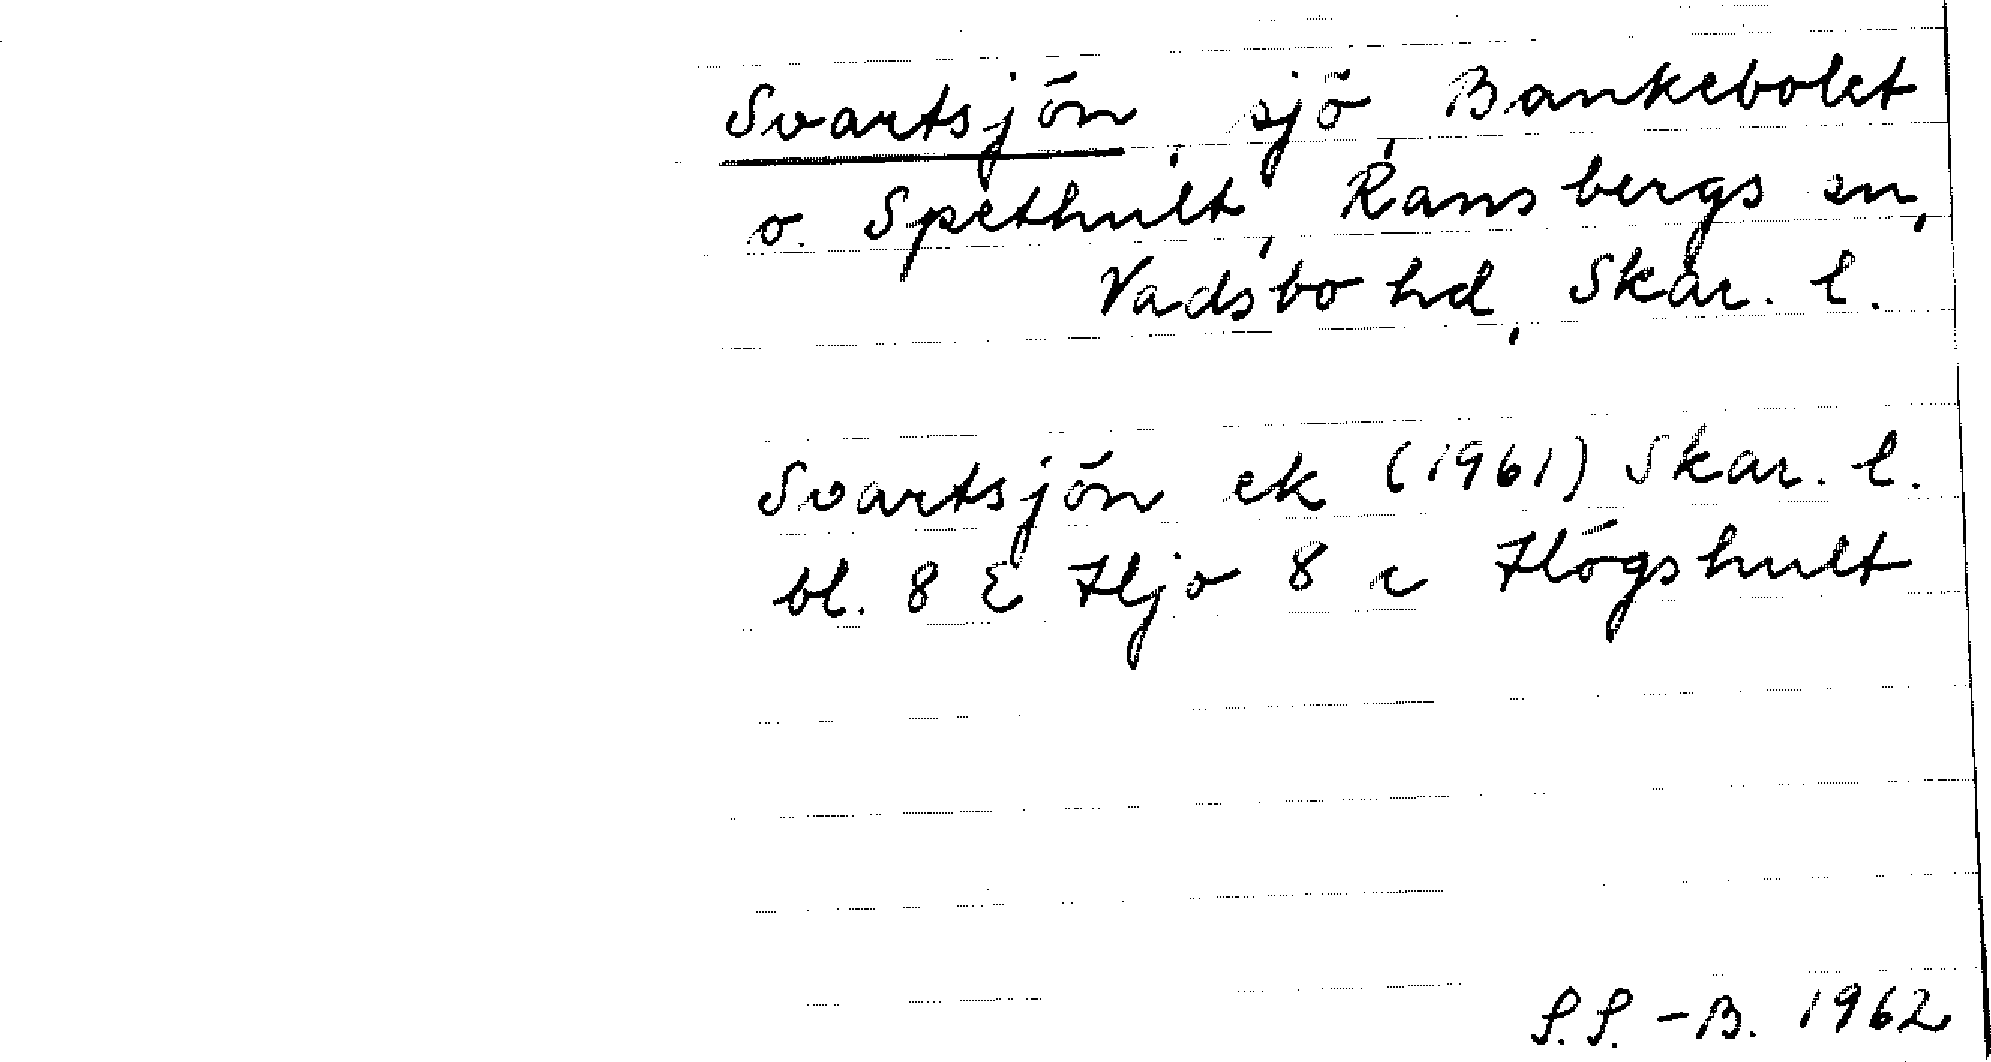 Svartsjön, sjö, Bankebolet
o. Spethult, Ransbergs sn,
Vadsbo hd, Skar. l.
Svartsjön ek (1961) Skar. l.
bl. 8 E Hjo 8 c Högshult
S.S.-B. 1962